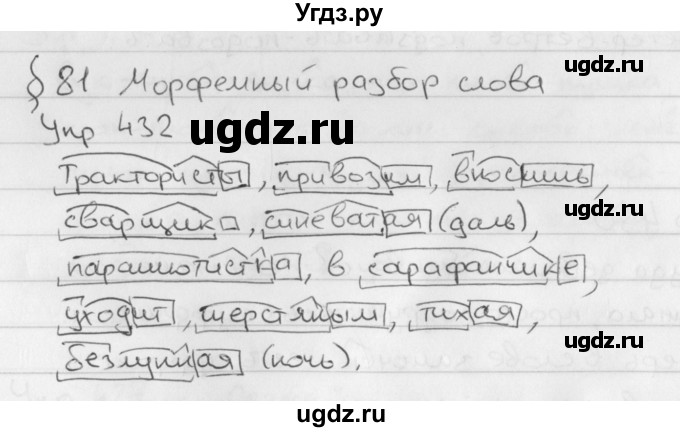 Угдз.ру
§ 81 Морфемный разбор слова
ugdz.ru
Упр 432
ugdz.ru
Трактористы, привозим, вносишь,
ugdz.ru
сварщик, синеватая (даль),
парашютистка, в сарафанчике,
уходит, шерстяным, тихая,
ugdz.ru
безлунная (ночь).
ugdz.ru